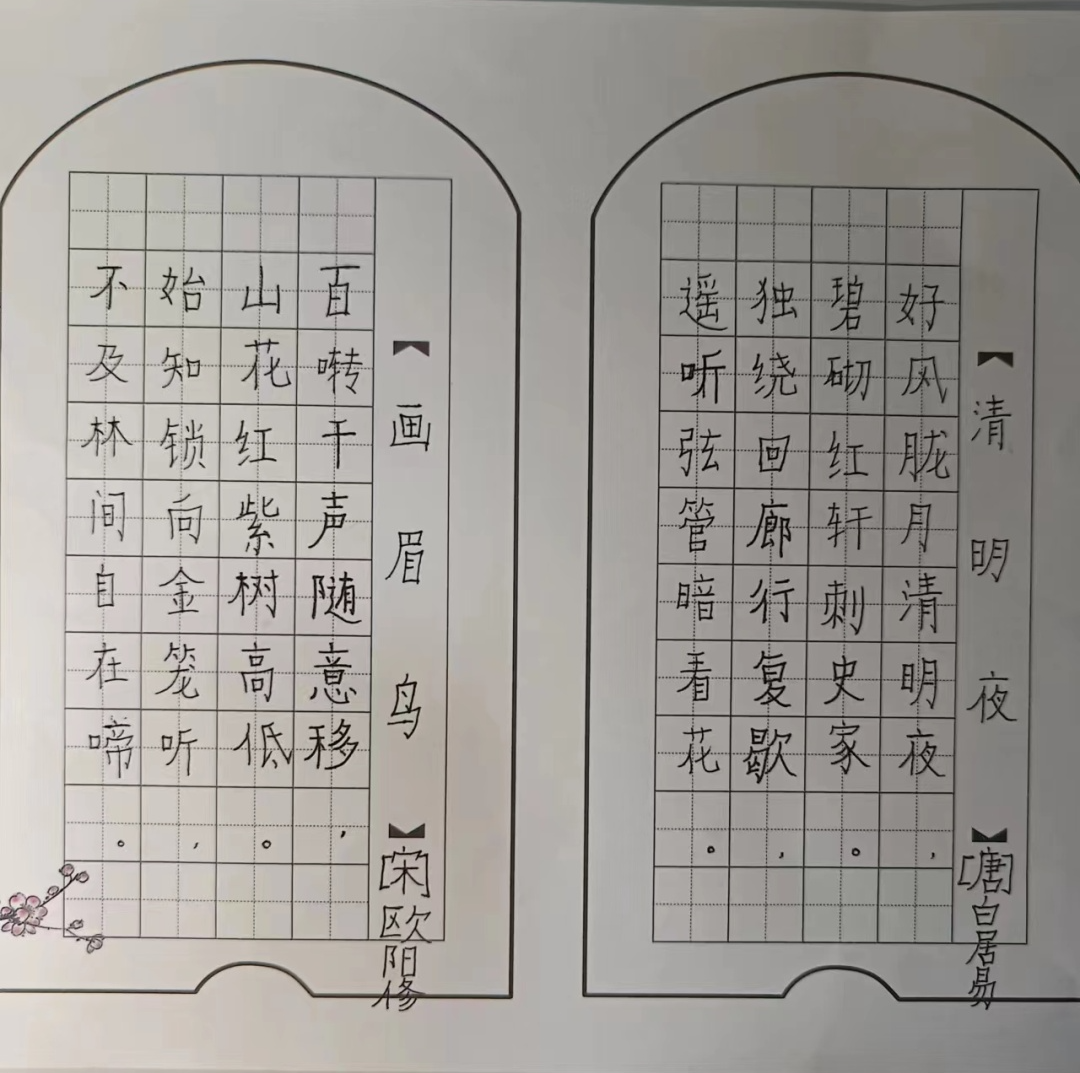 【清明夜】[唐]白居易
好风胧月清明夜，
碧砌红轩刺史家。
独绕回廊行复歇，
遥听弦管暗看花。
【画眉鸟】[宋]欧阳修
百啭千声随意移，
山花红紫树高低。
始知锁向金笼听，
不及林间自在啼。